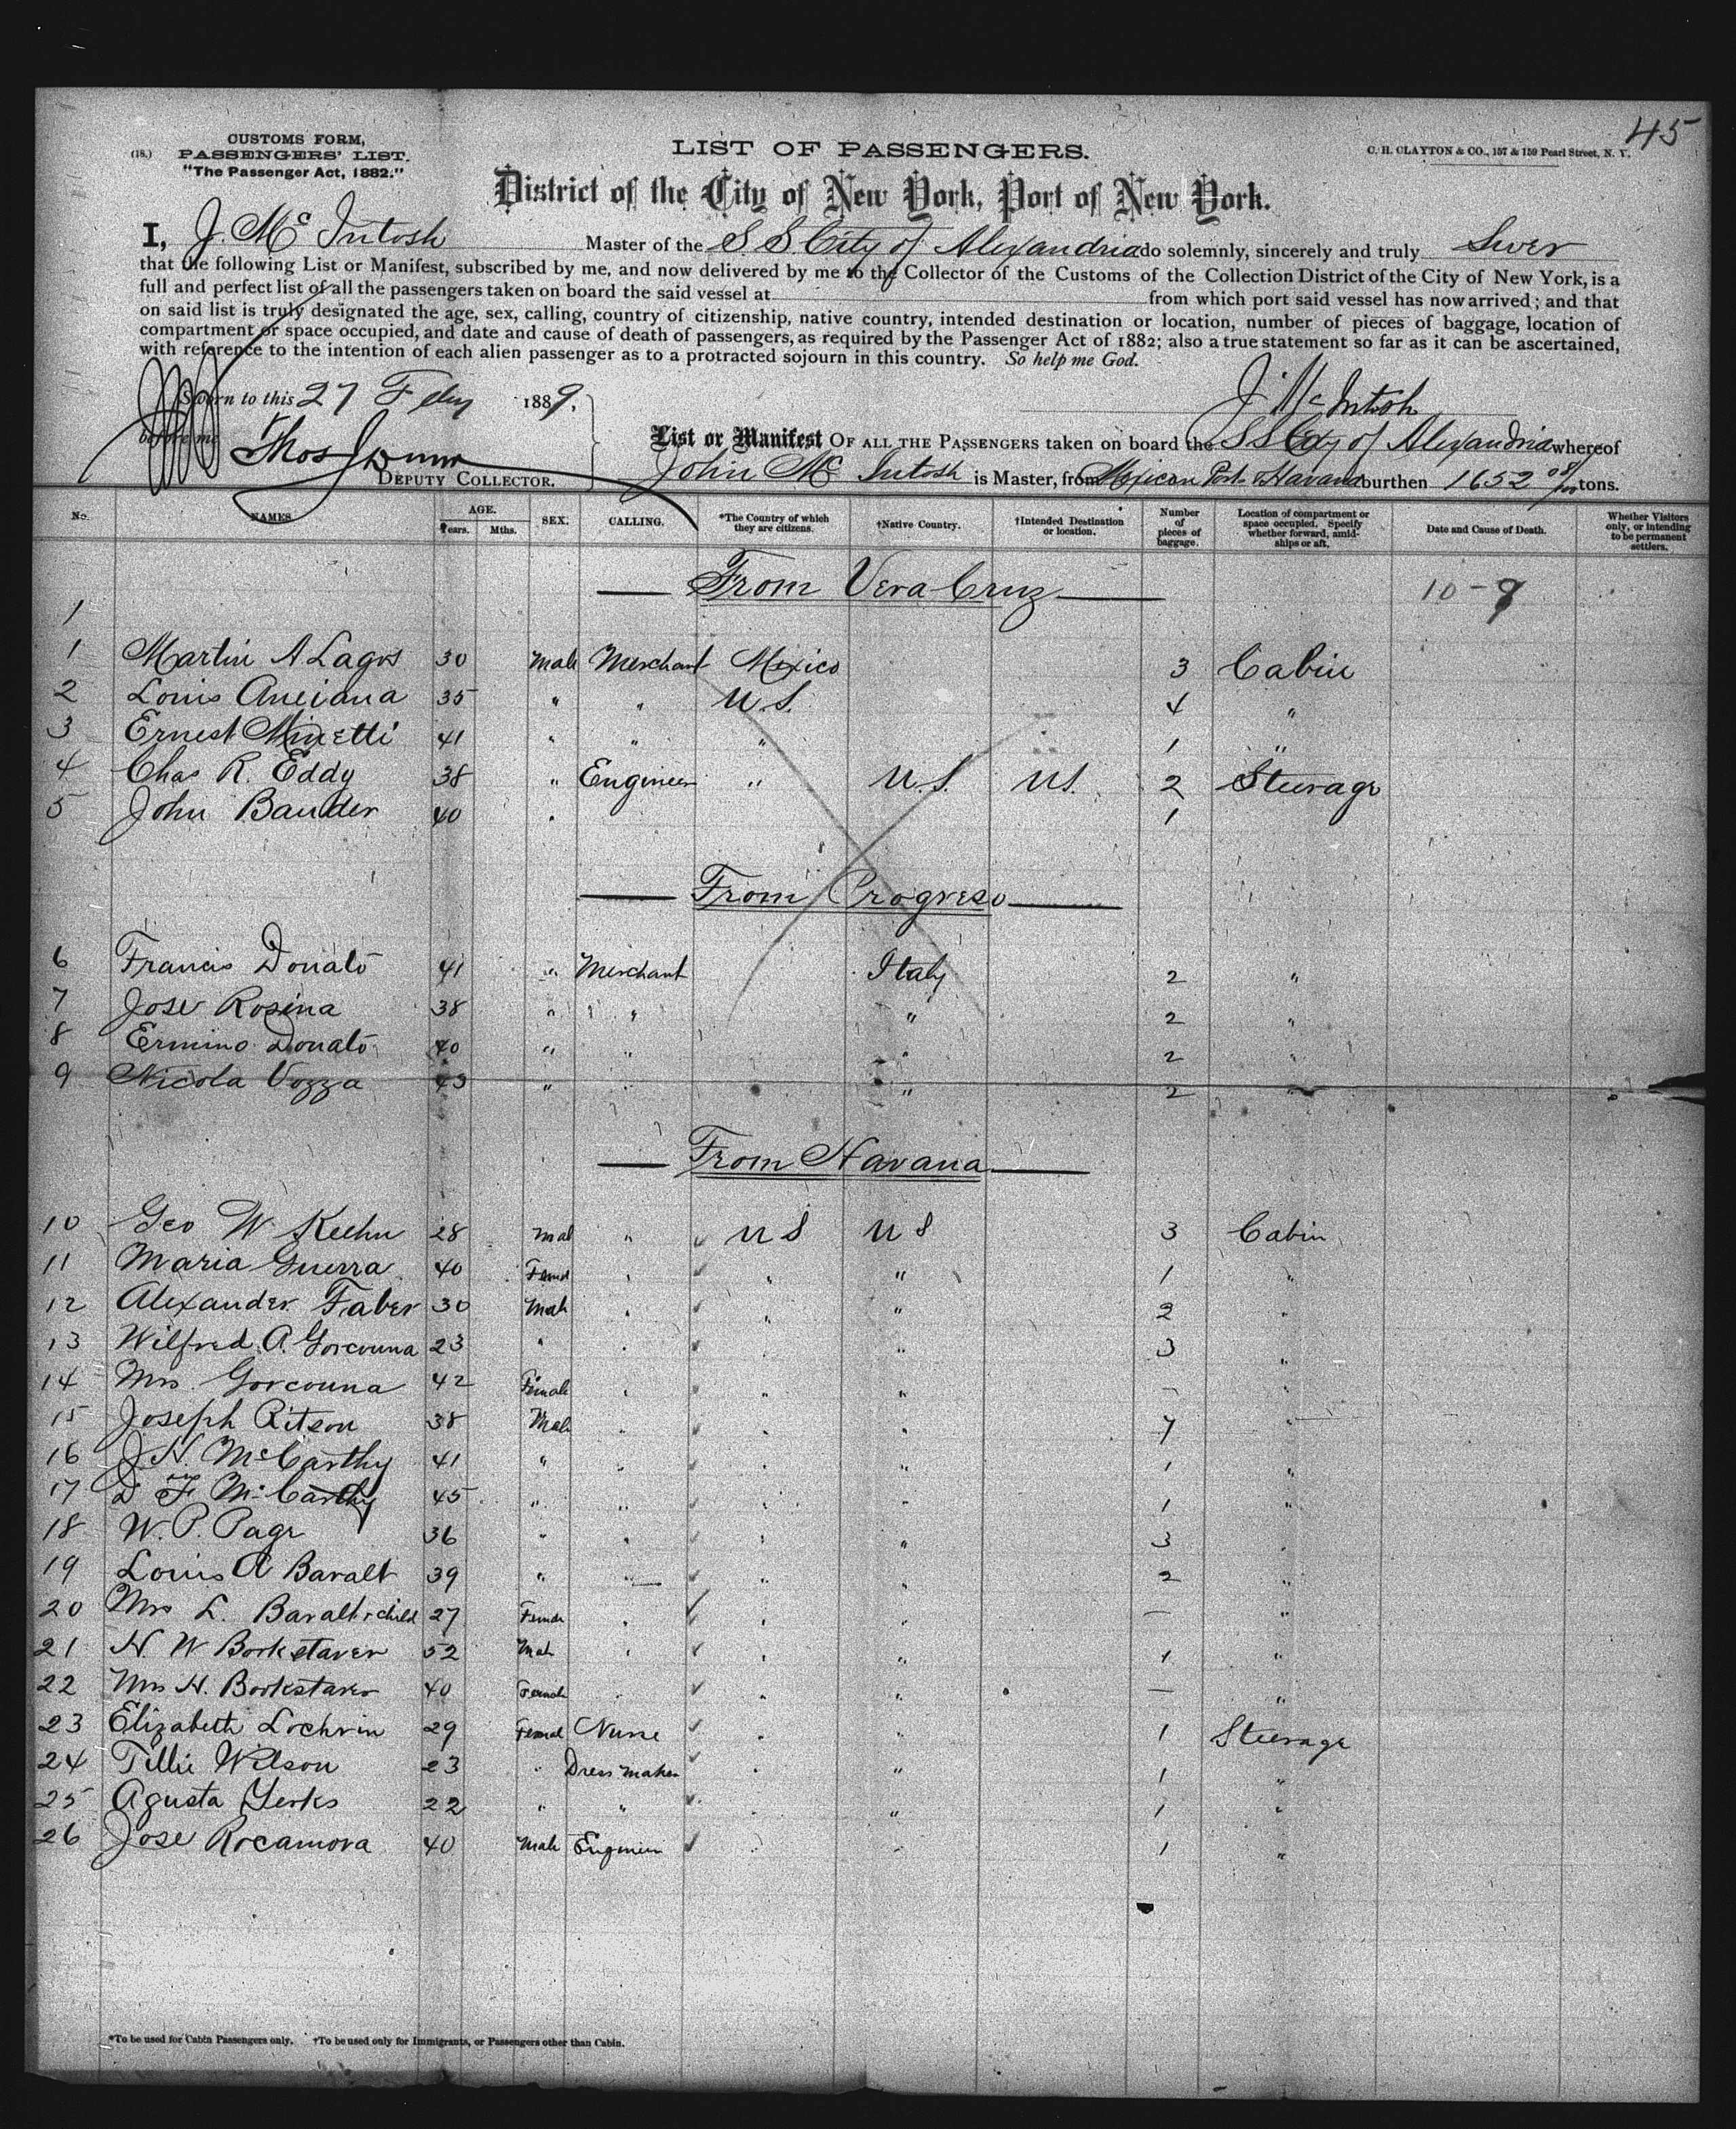 45
CUSTOMS FORM,
(18.) PASSENGERS' LIST.
"The Passenger Act, 1882."
LIST OF PASSENGERS.
C. H. CLAYTON & CO., 157 & 159 Pearl Street, N. Y.
District of the City of New York, Port of New York.
I, J. Mc Intosh Master of the S. S. City of Alexandria do solemnly, sincerely and truly Swer
that the following List or Manifest, subscribed by me, and now delivered by me to the Collector of the Customs of the Collection District of the City of New York, is a
full and perfect list of all the passengers taken on board the said vessel at from which port said vessel has now arrived; and that
on said list is truly designated the age, sex, calling, country of citizenship, native country, intended destination or location, number of pieces of baggage, location of
compartment or space occupied, and date and cause of death of passengers, as required by the Passenger Act of 1882; also a true statement so far as it can be ascertained,
with reference to the intention of each alien passenger as to a protracted sojourn in this country. So help me God.
Sworn to this 27 Feby 1889,
J Mc Intosh
before me
Thos
DEPUTY COLLECTOR.
List or Manifest OF ALL THE PASSENGERS taken on board the S S City of Alexandria whereof
John Mc Intosh is Master, from Mexican Ports & Havana burthen 1652 08/100 tons.
No. NAMES. AGE. Years. Mths. SEX. CALLING. *The Country of which they are citizens. †Native Country. †Intended Destination or location. Number of pieces of baggage. Location of compartment or space occupied. Specify whether forward, amidships or aft. Date and Cause of Death. Whether Visitors only, or intending to be permanent settlers.
From Vera Cruz 10-9
1
1 Martin A Lagos 30 Male Merchant Mexico 3 Cabin
2 Louis Anciana 35 " " U.S. 4 "
3 Ernest Minetti 41 " " " 1 "
4 Chas R. Eddy 38 " Engineer " U.S. U.S. 2 Steerage
5 John Bauder 40 " 1
From Progreso
6 Francis Donato 41 " Merchant Italy 2 "
7 Jose Rosina 38 " " " 2 "
8 Ermino Donato 40 " " " 2 "
9 Nicola Vozza 43 " " " 2 "
From Havana
10 Geo W Keehn 28 Mal " U S U S 3 Cabin
11 Maria Guerra 40 Femal " " " 1 "
12 Alexander Faber 30 Male " " " 2 "
13 Wilfred A. Gorcouna 23 " " " " 3 "
14 Mrs. Gorcouna 42 Female " " " - "
15 Joseph Ritson 38 Male " " " 7 "
16 J. H. McCarthy 41 " " " " 1 "
17 D F McCarthy 45 " " " " 1 "
18 W. P. Page 36 " " " " 3 "
19 Louis A Baralt 39 " " " " 2 "
20 Mrs L. Baralt & child 27 Female " " " - "
21 H. W Bookstaver 52 Male " " " 1 "
22 Mrs H. Bookstaver 40 Female " " " - "
23 Elizabeth Lochrin 29 Femal Nurse " " 1 Steerage
24 Tillie Wilson 23 " Dress Maker " " 1 "
25 Agusta Yerks 22 " " " " 1 "
26 Jose Rocamora 40 Male Engineer " " 1 "
*To be used for Cabin Passengers only. †To be used only for Immigrants, or Passengers other than Cabin.